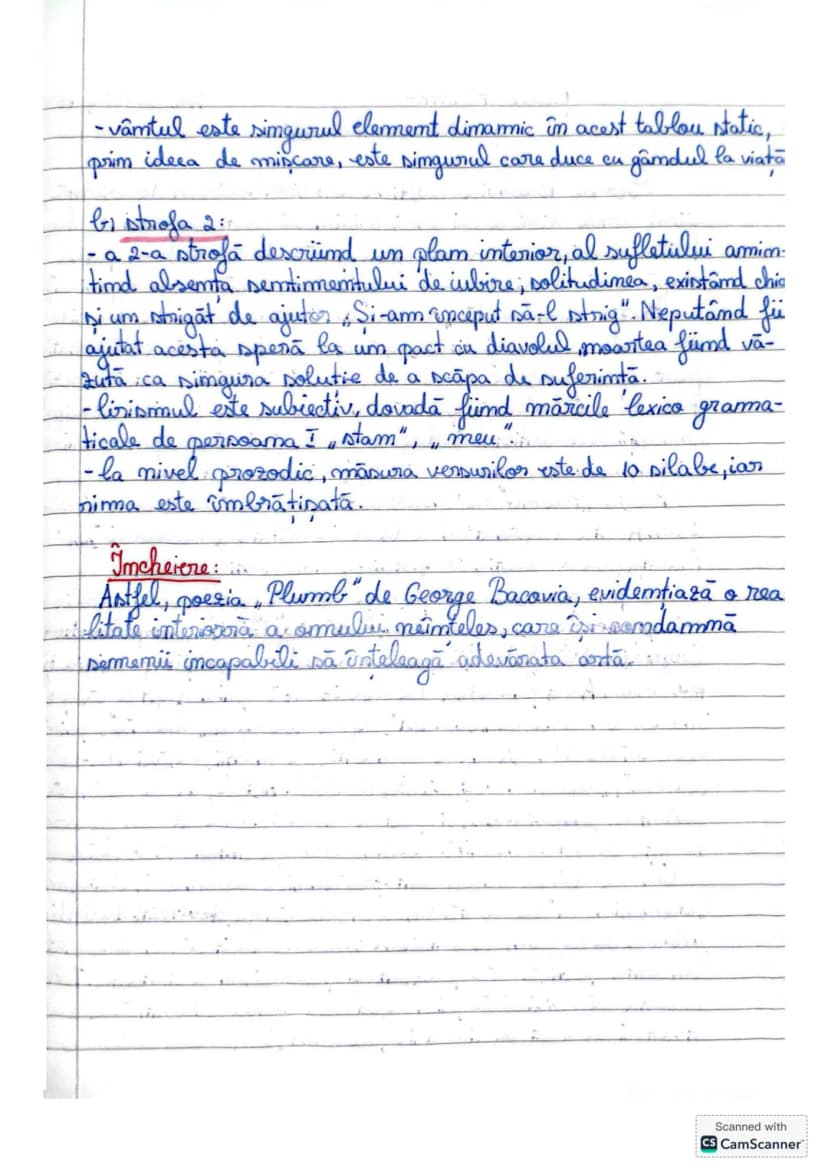 - vântul este singurul element dinamic în acest tablou static,
prin ideea de mișcare, este singurul care duce cu gândul la viață
b) strofa 2:
- a 2-a strofă descriind un plan interior, al sufletului amin-
tind absența sentimentului de iubire, solitudinea, existând chia
și un strigăt de ajutor „Și-am început să-l strig". Neputând fi
ajutat acesta speră la un pact cu diavolul, moartea fiind vă-
zută ca singura soluție de a scăpa de suferință.
- lirismul este subiectiv, dovadă fiind mărcile lexico grama-
ticale de persoana I „stam", „meu".
- la nivel prozodic, măsura versurilor este de 10 silabe, iar
rima este îmbrățișată.
Încheiere:
Astfel, poezia „Plumb" de George Bacovia, evidențiază o rea
litate interioară a omului neînțeles, care își condamnă
semenii incapabili să înțeleagă adevărata artă.
Scanned with
CS CamScanner